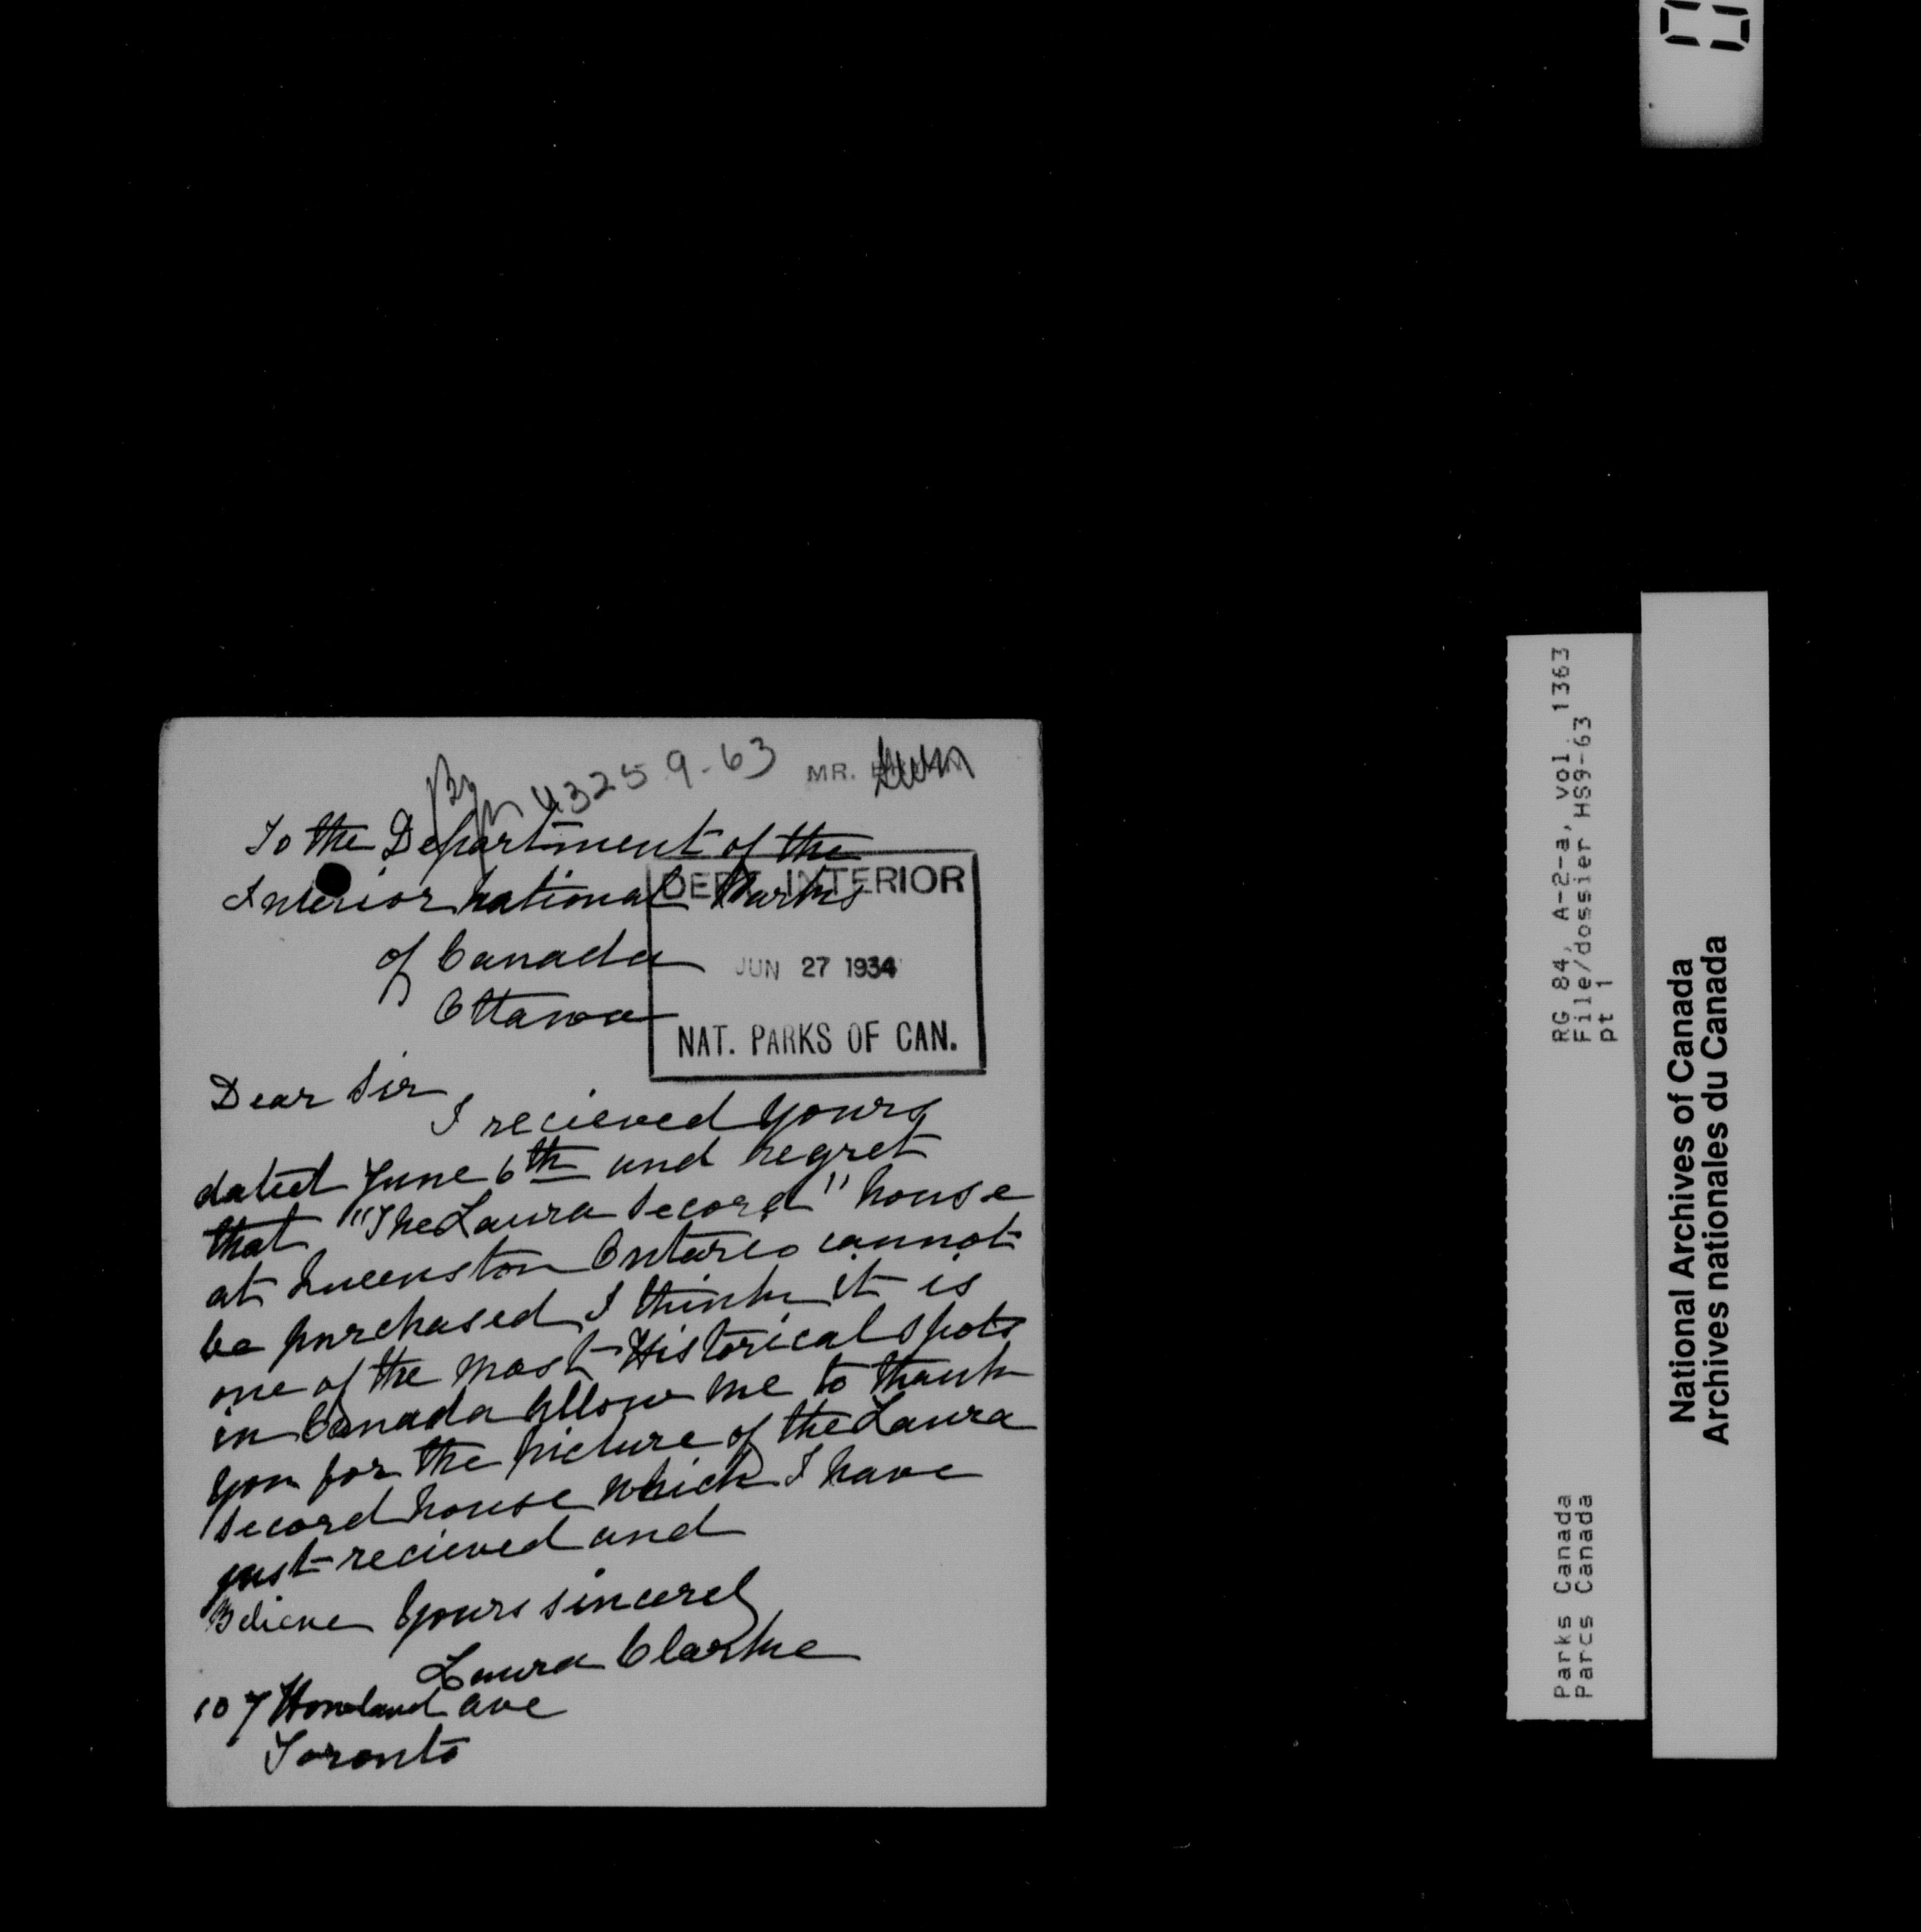 43259-63
MR.
To the Department of the
Interior National Parks
of Canada
Ottawa
DEPT. INTERIOR
JUN 27 1934
NAT. PARKS OF CAN.
Dear Sir
I recieved yours
dated June 6th and regret
that "The Laura Secord" house
at Queenston Ontario cannot
be purchased I think it is
one of the most Historical spots
in Canada Allow me to thank
you for the picture of the Laura
Secord house which I have
just recieved and
Believe Yours sincerely
Laura Clarke
107 Ave
Toronto
RG 84, A-2-a, vol. 1363
File/dossier HS9-63
pt 1
Parks Canada
Parcs Canada
National Archives of Canada
Archives nationales du Canada